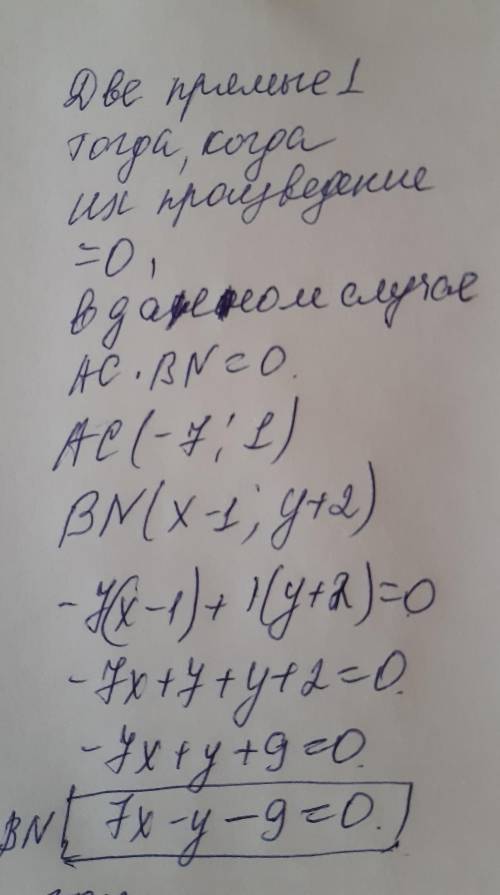 Две прямые ⊥
тогда, когда
их произведение
=0,
в данном случае
AC · BN = 0.
AC (-7; 1)
BN (x-1; y+2)
-7(x-1)+1(y+2)=0
-7x+7+y+2=0.
-7x+y+9=0.
BN 7x-y-9=0.